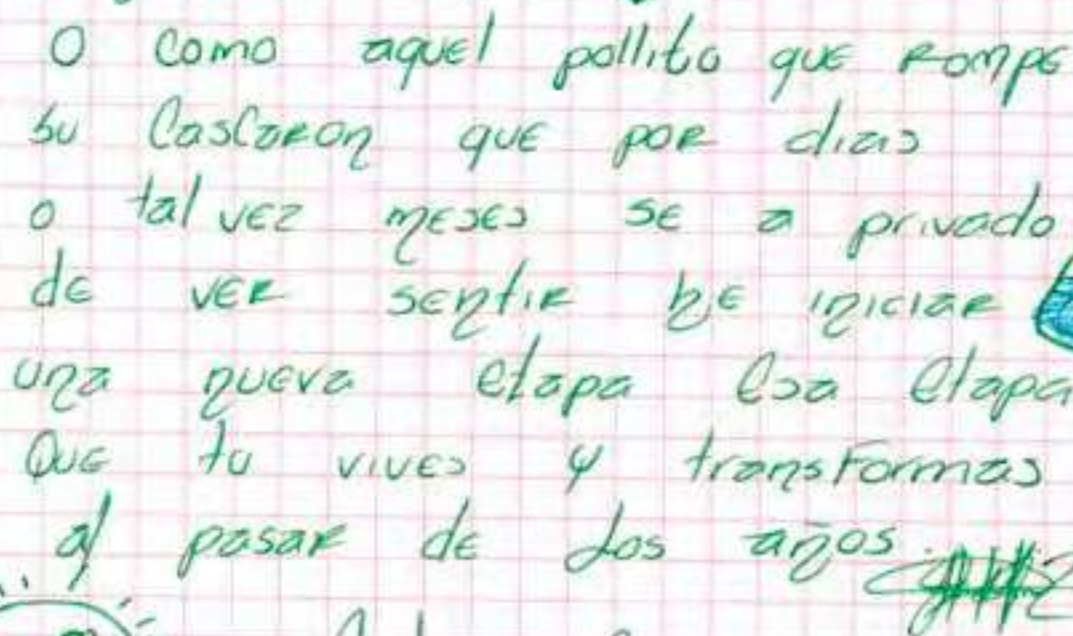 O como aquel pollito que rompe
su Cascaron que por dias
o tal vez meses se a privado
de ver sentir de iniciar
una nueva etapa Esa Etapa
Que tu vives y transformas
al pasar de los años.